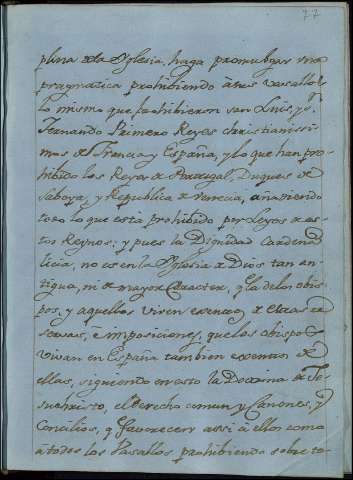 77
plina de la Yglesia, haga promulgar una
pragmatica prohibiendo à sus vasallos
lo mismo que prohibieron san Luis, y
Fernando Primero Reyes christianissi
mos de Francia y España, y lo que han pro
hibido los Reyes de Portugal, Duques de
Saboya, y Republica de Venecia, añadiendo
todo lo que està prohibido por Leyes de es
tos Reynos; y pues la Dignidad Cardena
licia, no es en la Yglesia de Dios tan an
tigua, ni de mayor Caracter, q la de los obis
pos, y aquellos viven exemptos de estas
è imposiciones, que los obispos
vivan en España tambien exemptos de
ellas, siguiendo en esto la Doctrina de Je
suchristo, el derecho comun y Canones, y
Concilios, q favorecen assi à ellos como
à todos los Vasallos prohibiendo sobre to